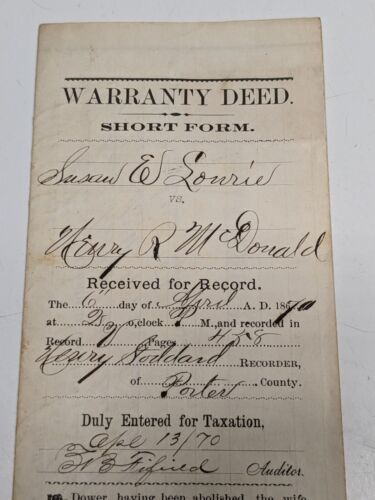 WARRANTY DEED.
SHORT FORM.
Susan E Lowrie
vs.
Henry R McDonald
Received for Record.
The 6 day of April A. D. 1870
at 2 o,clock P M., and recorded in
Record Pages 458
Henry Goddard RECORDER,
of Porter County.
Duly Entered for Taxation,
Apl 13/70
Fifield Auditor.
Dower, having been abolished, the wife